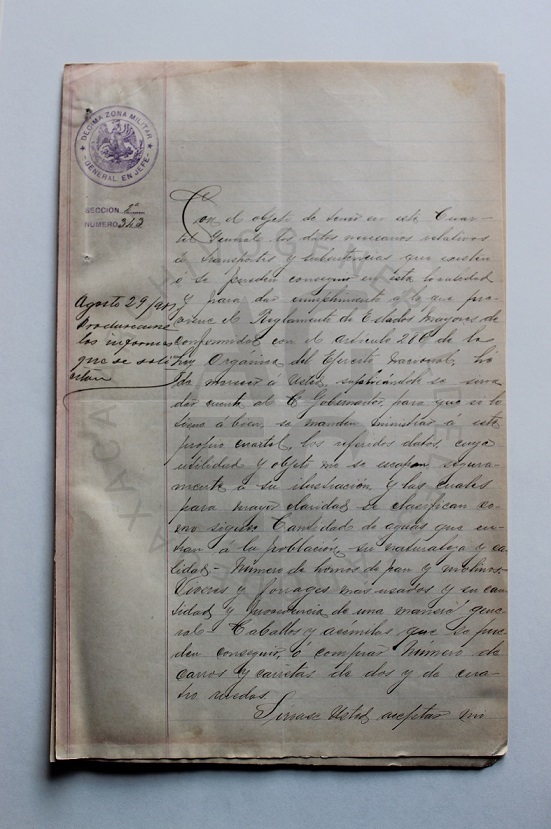 DECIMA ZONA MILITAR
GENERAL EN JEFE
SECCION 2ª
NUMERO 343
Agosto 29/901
los informes
que se soli
citan
Con el objeto de tener en este Cuar-
tel General los datos necesarios relativos
á transportes y subsistencias que existen
ó se pueden conseguir en esta localidad
y para dar cumplimiento á lo que pre-
viene el Reglamento de Estados Mayores de
conformidad con el articulo 206 de la
Ley Orgánica del Ejercito Nacional, he
de merecer á Usted, suplicandole se sirva
dar cuenta al C. Gobernador, para que si lo
tiene á bien, se manden ministrar á este
propio cuartel, los referidos datos, cuya
utilidad y objeto no se escapan segura-
mente á su ilustración y las cuales
para mayor claridad se clasifican co-
mo sigue: Cantidad de aguas que en-
tran á la población, su naturaleza y ca-
lidad.- Número de hornos de pan y molinos.-
Viveres y forrages mas usados y su can-
tidad y procedencia de una manera gene-
ral.- Caballos y acémilas que se pue-
den conseguir, ó comprar. Número de
carros y carretas de dos y de cua-
tro ruedas.
Sirvase Usted aceptar mi